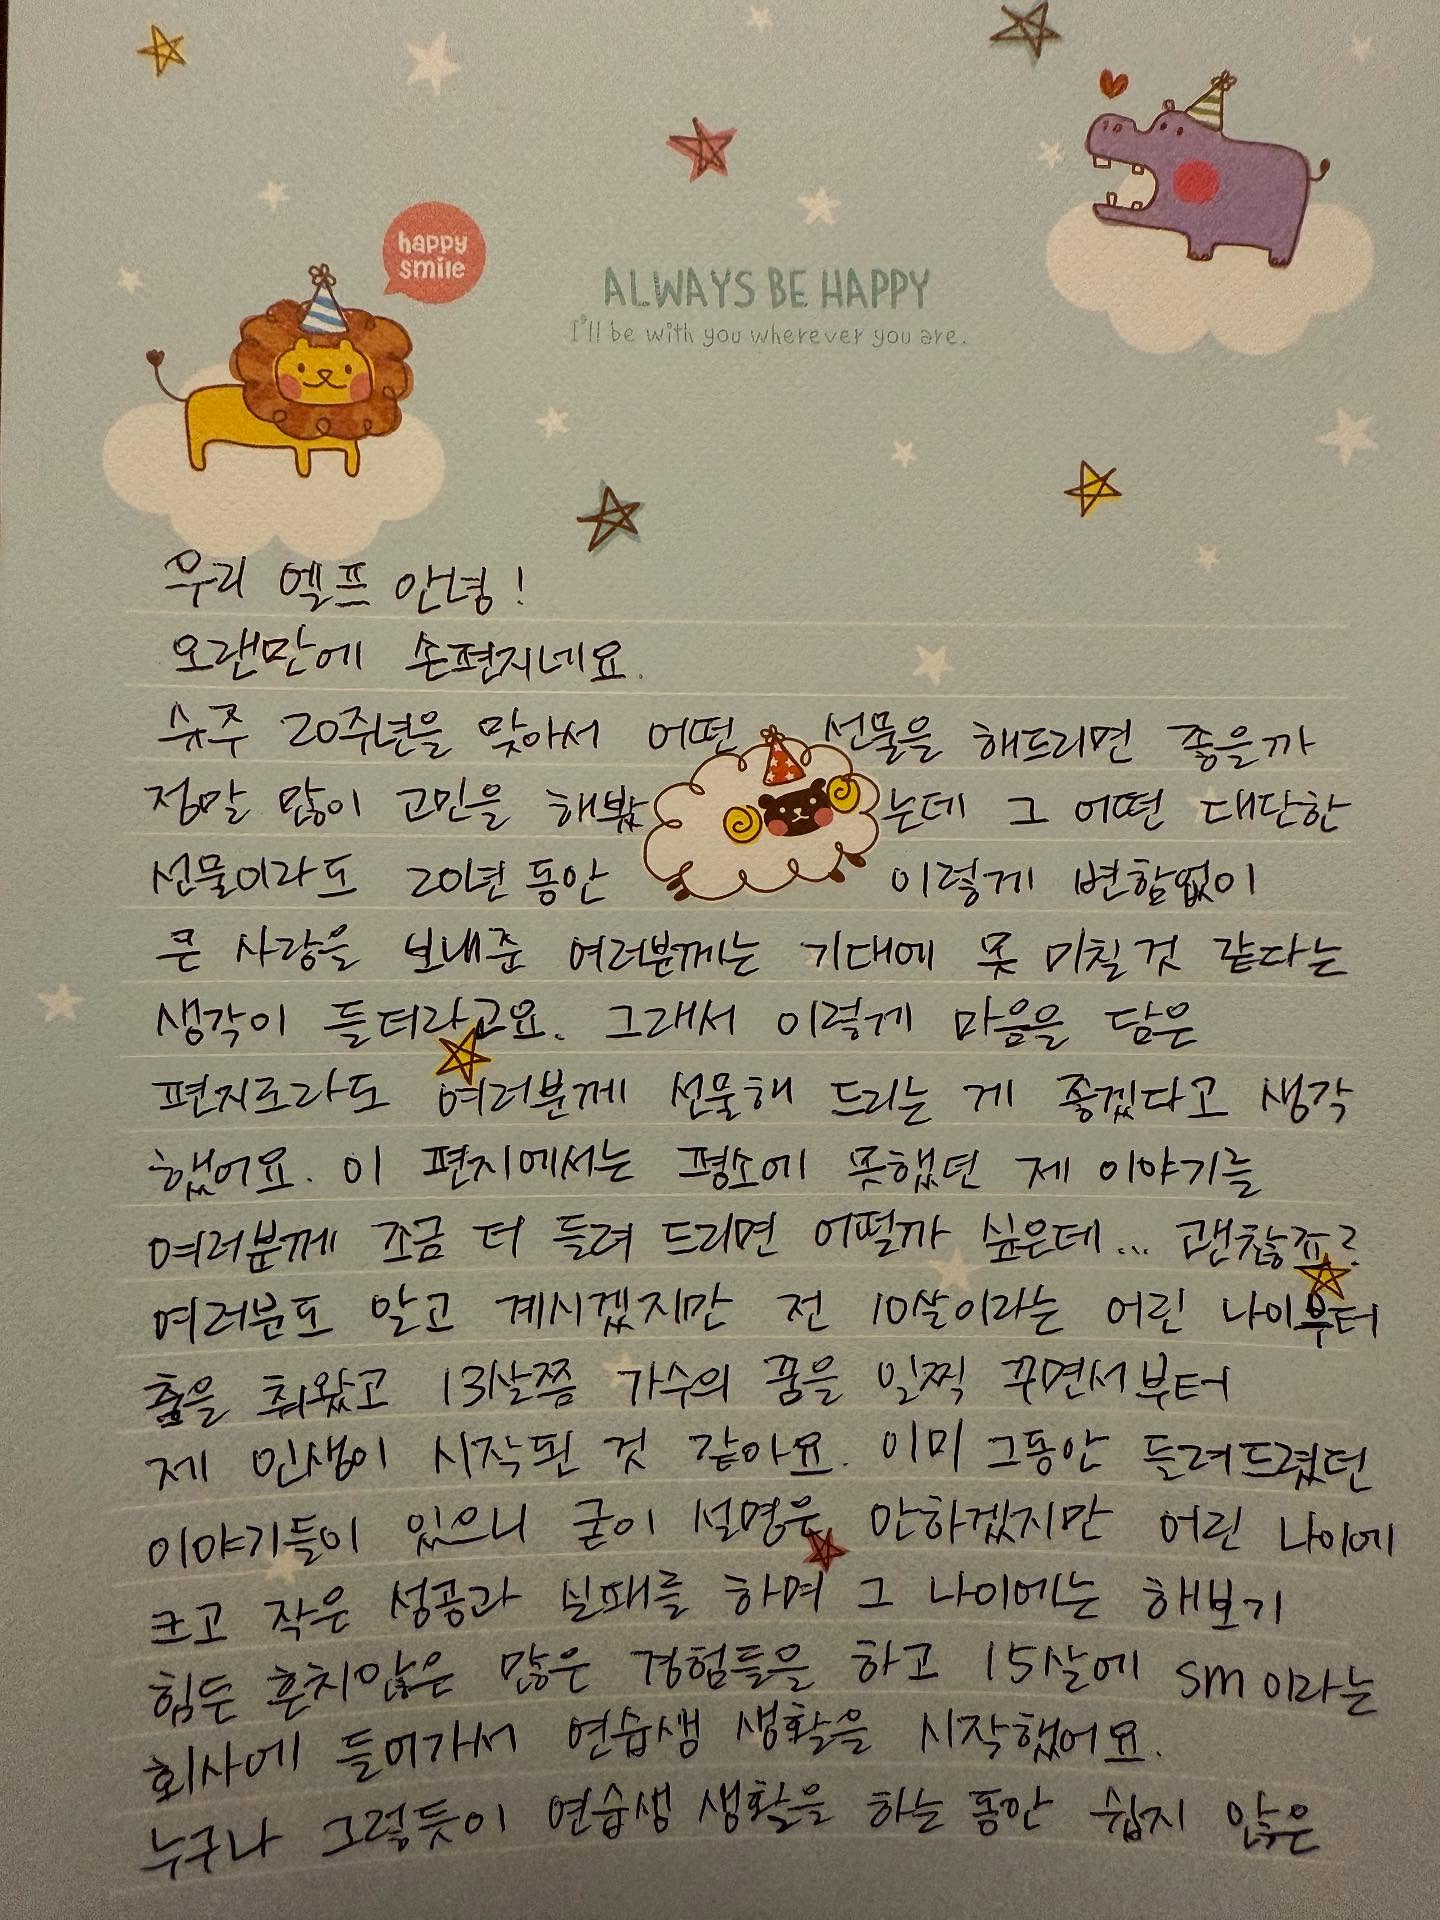 happy
smile
ALWAYS BE HAPPY
I'll be with you wherever you are.
우리 엘프 안녕!
오랜만에 손편지네요.
슈주 20주년을 맞아서 어떤 선물을 해드리면 좋을까
정말 많이 고민을 해봤는데 그 어떤 대단한
선물이라도 20년 동안 이렇게 변함없이
큰 사랑을 보내준 여러분께는 기대에 못 미칠것 같다는
생각이 들더라고요. 그래서 이렇게 마음을 담은
편지로라도 여러분께 선물해 드리는 게 좋겠다고 생각
했어요. 이 편지에서는 평소에 못했던 제 이야기를
여러분께 조금 더 들려 드리면 어떨까 싶은데... 괜찮죠?
여러분도 알고 계시겠지만 전 10살이라는 어린 나이부터
춤을 춰왔고 13살쯤 가수의 꿈을 일찍 꾸면서부터
제 인생이 시작된 것 같아요. 이미 그동안 들려드렸던
이야기들이 있으니 굳이 설명은 안하겠지만 어린 나이에
크고 작은 성공과 실패를 하며 그 나이에는 해보기
힘든 흔치않은 많은 경험들을 하고 15살에 SM이라는
회사에 들어가서 연습생 생활을 시작했어요.
누구나 그렇듯이 연습생 생활을 하는 동안 쉽지 않은